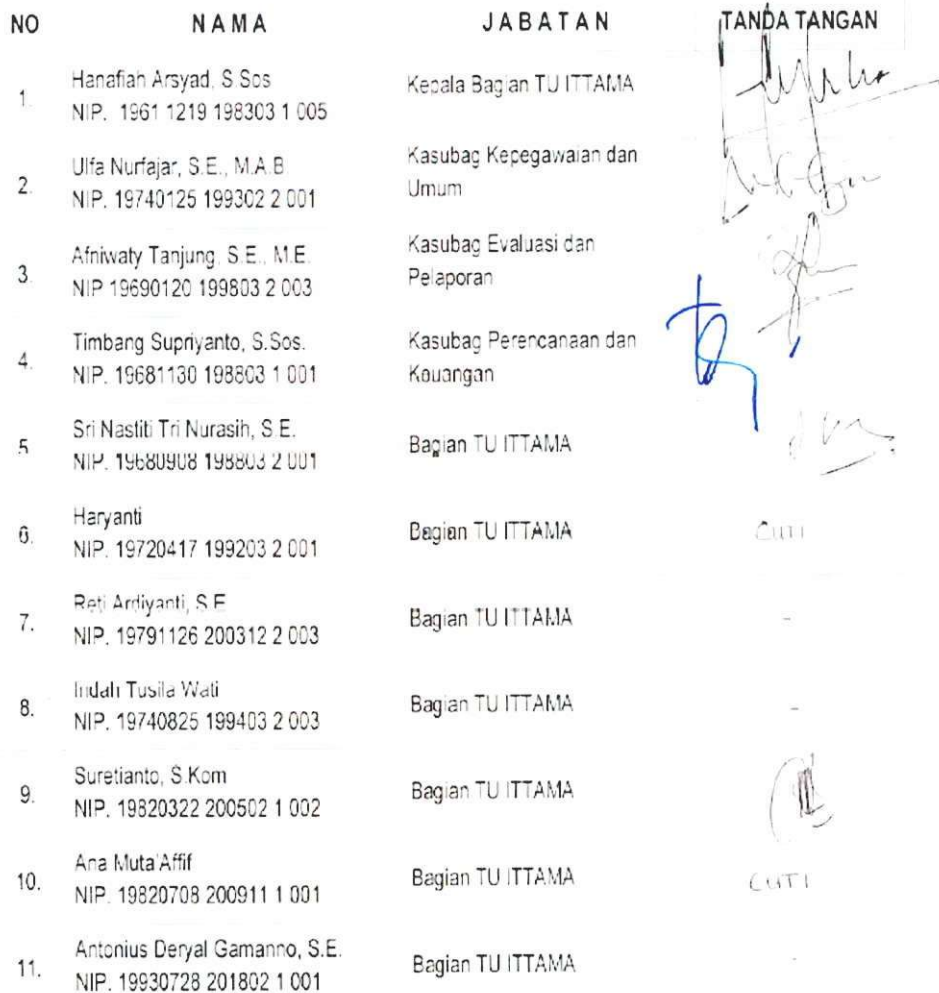 NO NAMA JABATAN TANDA TANGAN
1. Hanafiah Arsyad, S.Sos
NIP. 1961 1219 198303 1 005
Kepala Bagian TU ITTAMA
2. Ulfa Nurfajar, S.E., M.A.B
NIP. 19740125 199302 2 001
Kasubag Kepegawaian dan
Umum
3. Afniwaty Tanjung, S.E., M.E.
NIP 19690120 199803 2 003
Kasubag Evaluasi dan
Pelaporan
4. Timbang Supriyanto, S.Sos.
NIP. 19681130 198803 1 001
Kasubag Perencanaan dan
Keuangan
5 Sri Nastiti Tri Nurasih, S.E.
NIP. 19680908 198803 2 001
Bagian TU ITTAMA
6. Haryanti
NIP. 19720417 199203 2 001
Bagian TU ITTAMA
CUTI
7. Reti Ardiyanti, S.E
NIP. 19791126 200312 2 003
Bagian TU ITTAMA
-
8. Indah Tusila Wati
NIP. 19740825 199403 2 003
Bagian TU ITTAMA
-
9. Suretianto, S.Kom
NIP. 19820322 200502 1 002
Bagian TU ITTAMA
10. Ana Muta'Affif
NIP. 19820708 200911 1 001
Bagian TU ITTAMA
CUTI
11. Antonius Deryal Gamanno, S.E.
NIP. 19930728 201802 1 001
Bagian TU ITTAMA
-